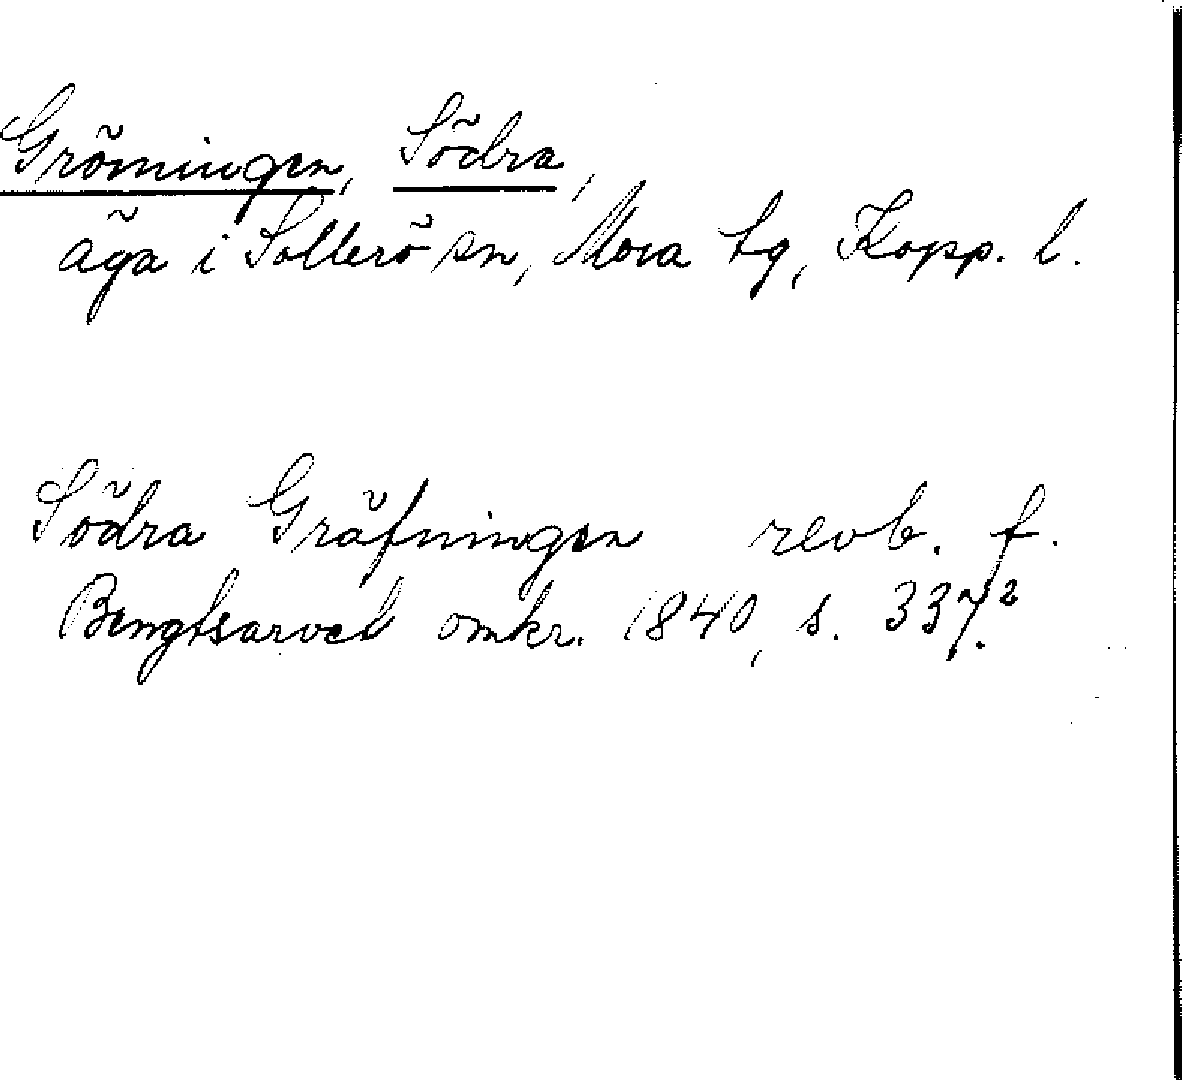 Grömingen, Södra,
äga i Sollerö sn, Mora tg, Kopp. l.
Södra Gräfningen revb. f.
Bengtsarvet omkr. 1840, s. 337.²